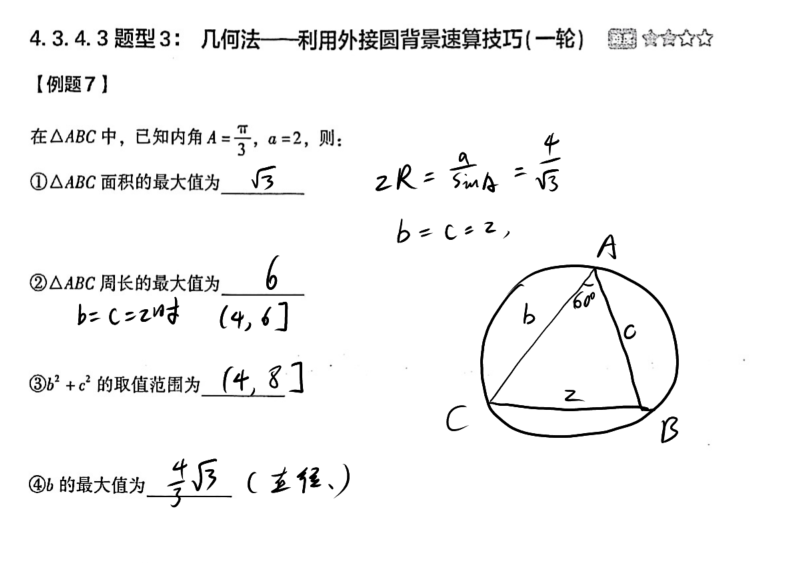 4.3.4.3 题型3： 几何法——利用外接圆背景速算技巧(一轮) 难度 ☆☆☆☆
【例题7】
在△ABC 中，已知内角 A=π/3，a=2，则：
①△ABC 面积的最大值为 √3
2R = a/sinA = 4/√3
b = c = 2，
②△ABC 周长的最大值为 6
b = c = 2时 (4, 6]
③b²+c² 的取值范围为 (4, 8]
④b 的最大值为 4/3 √3 (直径、)
A
60°
b
c
2
C
B